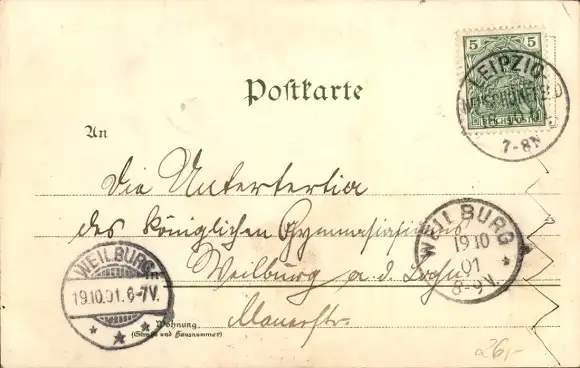 5 5
LEIPZIG
7-8N
Postkarte
An
Die Untertertia
des Königlichen Gymnasiums
Weilburg a. d. Lahn
Mauerstr.
WEILBURG
19 10
01
8-9V.
WEILBURG
19.10.01. 6-7V.
Wohnung
(Straße und Hausnummer)
26,-